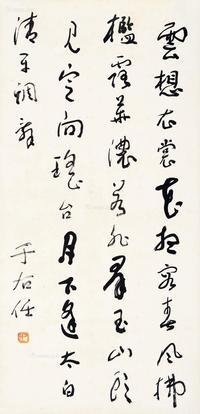 雲想衣裳花想容春風拂
檻露華濃若非羣玉山頭
見會向瑤台月下逢太白
清平調辭
于右任